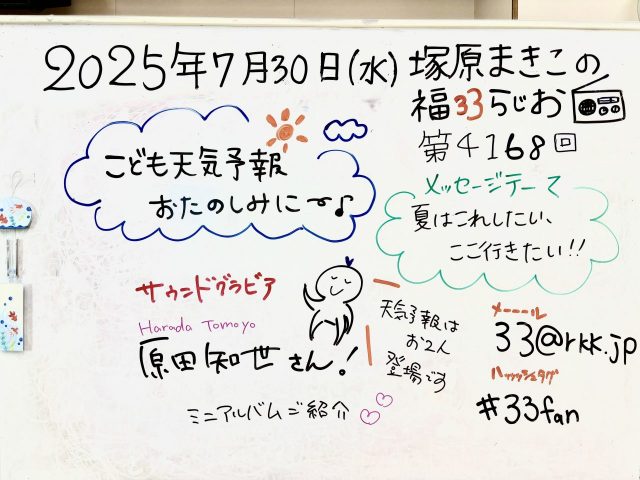 2025年7月30日(水) 塚原まきこの
福33らじお
第4168回
こども天気予報
おたのしみに〜♪
メッセージテーマ
夏はこれしたい、
ここ行きたい!!
サウンドグラビア
Harada Tomoyo
原田知世さん!
ミニアルバムご紹介
天気予報は
お2人
登場です
メーール
33@rkk.jp
ハッシュタグ
#33fan